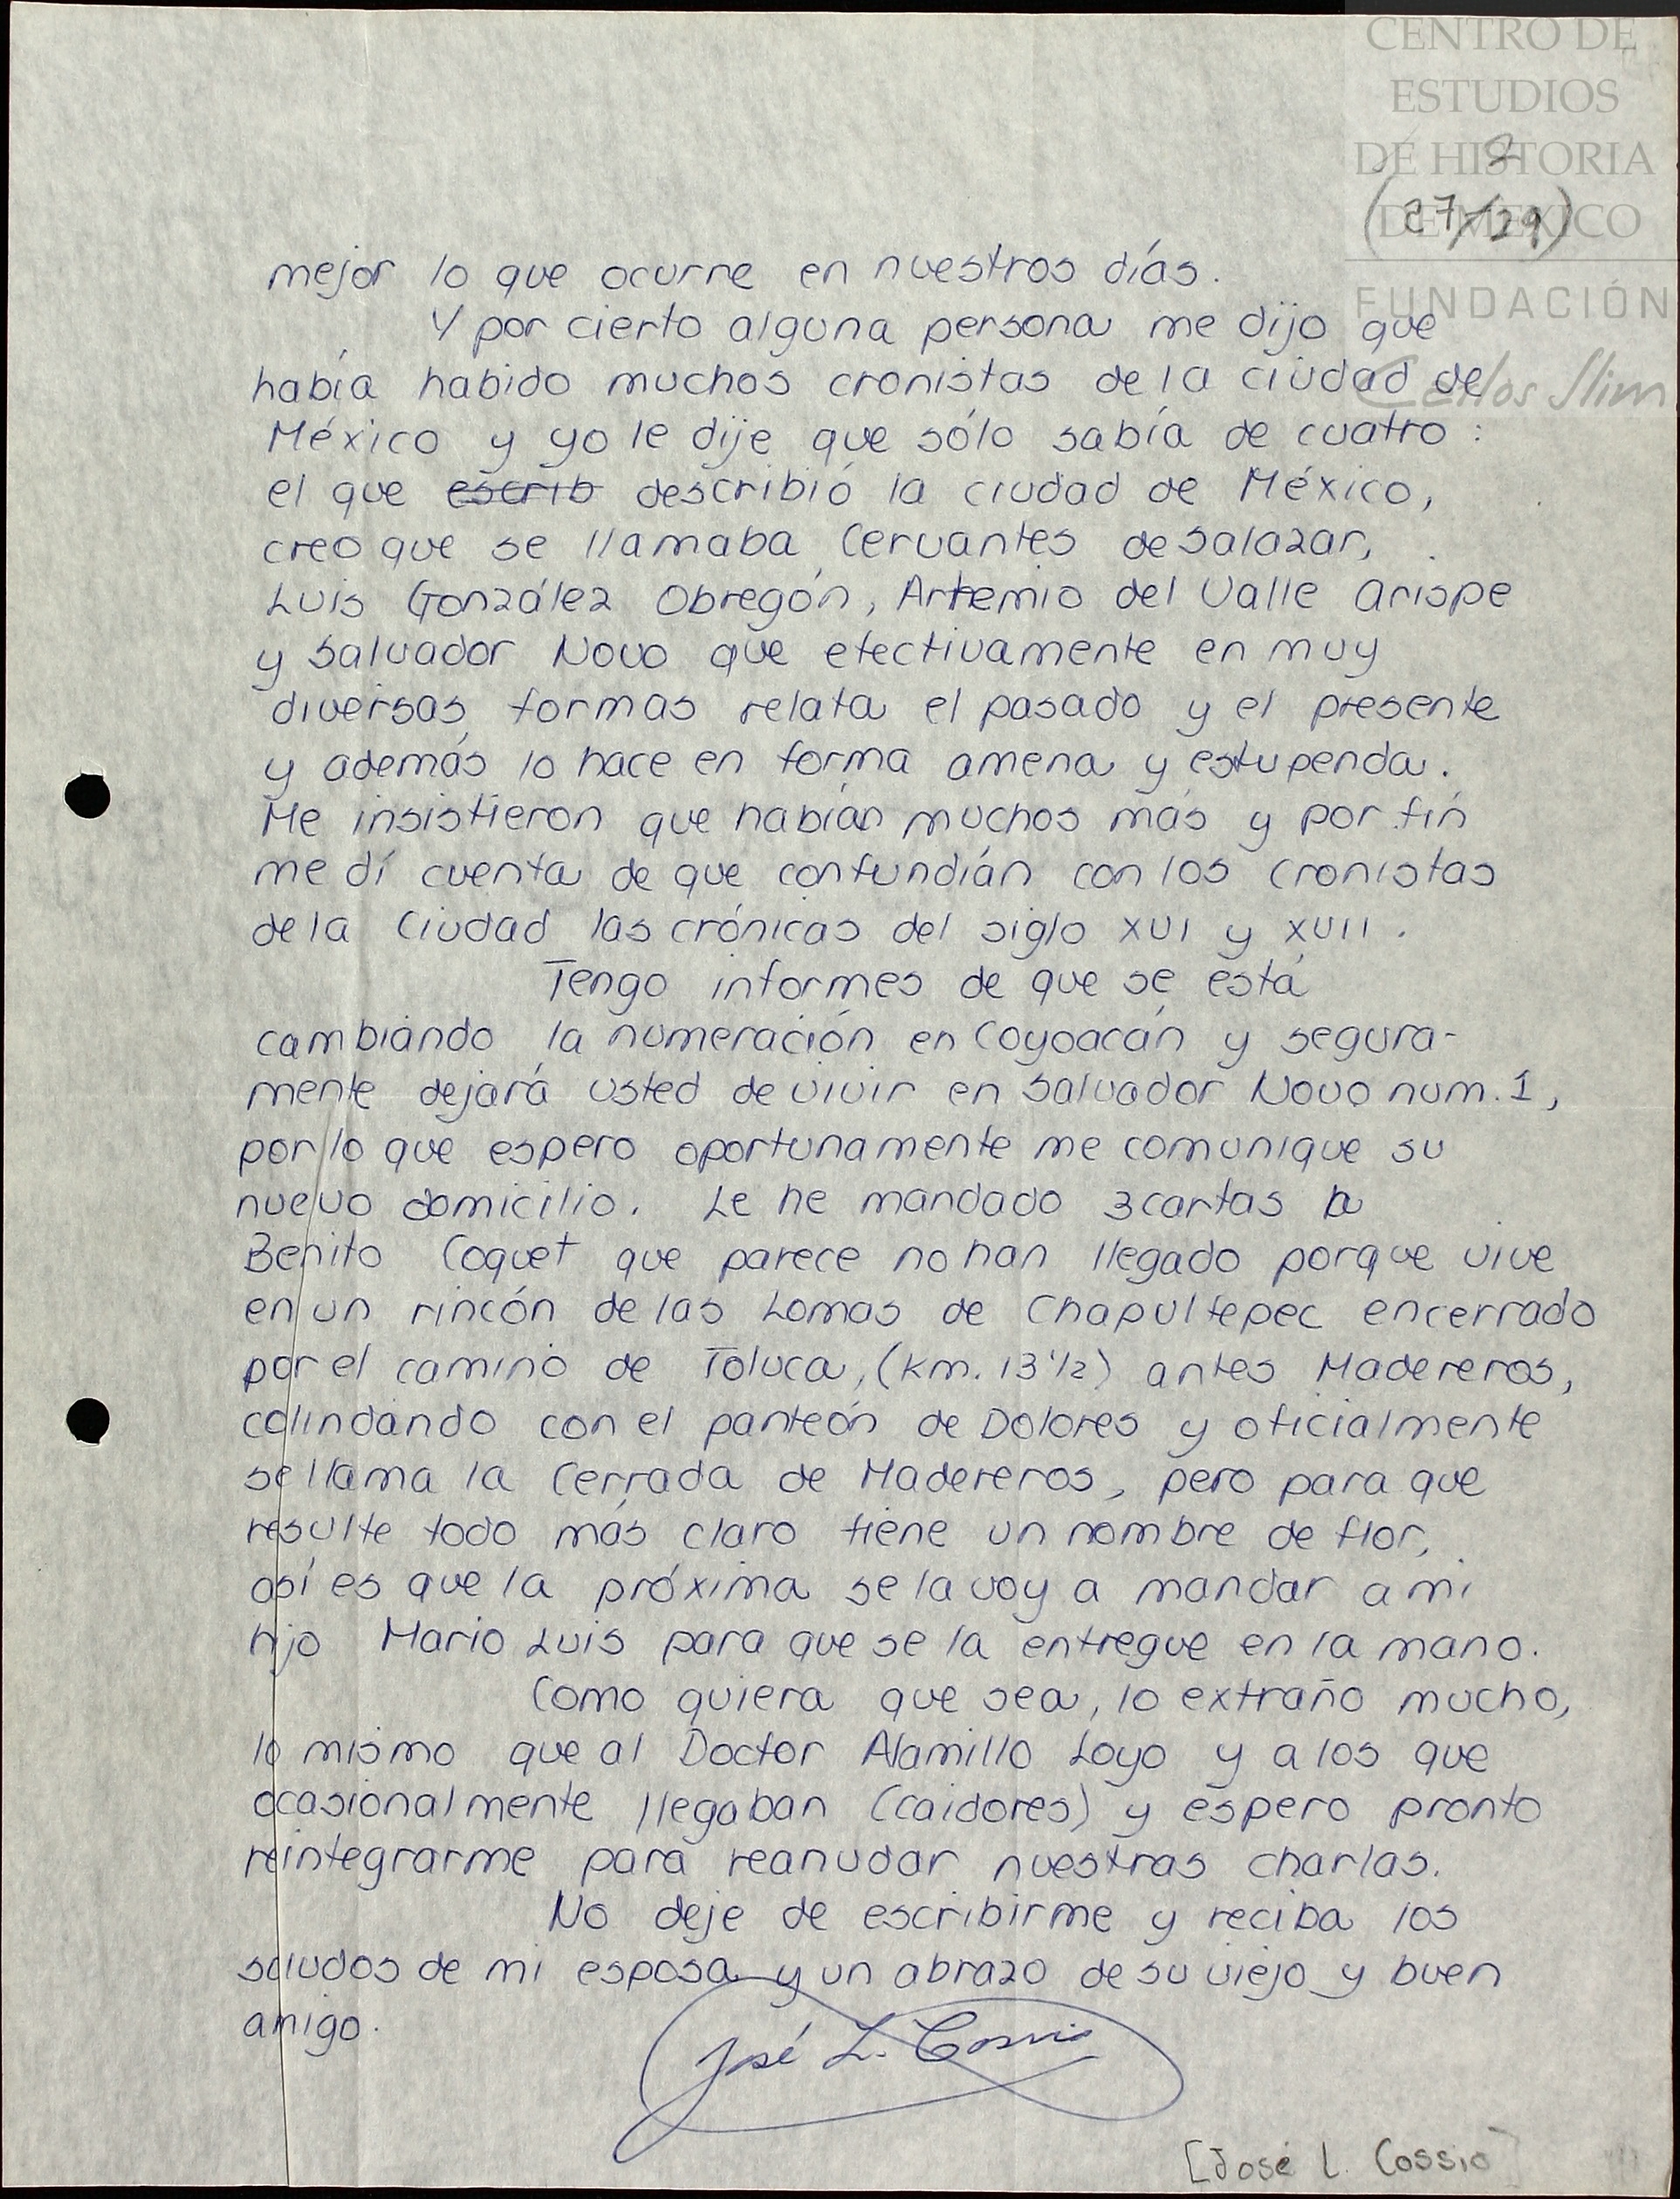 CENTRO DE
ESTUDIOS
DE HISTORIA
DE MÉXICO
FUNDACIÓN
Carlos Slim
2
(27/29)
mejor lo que ocurre en nuestros días.
Y por cierto alguna persona me dijo que
había habido muchos cronistas de la ciudad de
México y yo le dije que sólo sabía de cuatro:
el que escrib describió la ciudad de México,
creo que se llamaba Cervantes de Salazar,
Luis González Obregón, Artemio del Valle Arispe
y Salvador Novo que efectivamente en muy
diversas formas relata el pasado y el presente
y además lo hace en forma amena y estupenda.
Me insistieron que habían muchos más y por fín
me dí cuenta de que confundián con los cronistas
de la Ciudad las crónicas del siglo XVI y XVII.
Tengo informes de que se está
cambiando la numeración en Coyoacán y segura-
mente dejará usted de vivir en Salvador Novo num. 1,
por lo que espero oportunamente me comunique su
nuevo domicilio. Le he mandado 3 cartas a
Benito Coquet que parece no han llegado porque vive
en un rincón de las Lomas de Chapultepec encerrado
por el camino de Toluca, (km. 13 1/2) antes Madereros,
colindando con el panteón de Dolores y oficialmente
se llama la Cerrada de Madereros, pero para que
resulte todo más claro tiene un nombre de flor,
así es que la próxima se la voy a mandar a mi
hijo Mario Luis para que se la entregue en la mano.
Como quiera que sea, lo extraño mucho,
lo mismo que al Doctor Alamillo Loyo y a los que
ocasionalmente llegaban (caidores) y espero pronto
reintegrarme para reanudar nuestras charlas.
No deje de escribirme y reciba los
saludos de mi esposa y un abrazo de su viejo y buen
amigo.
José L. Cossío
[José L. Cossio]